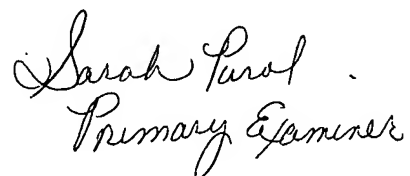 Sarah Purol
Primary Examiner